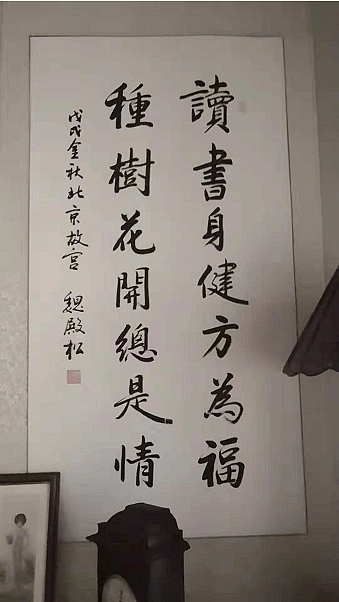 讀書身健方為福
種樹花開總是情
戊戌金秋北京故宮 魏殿松